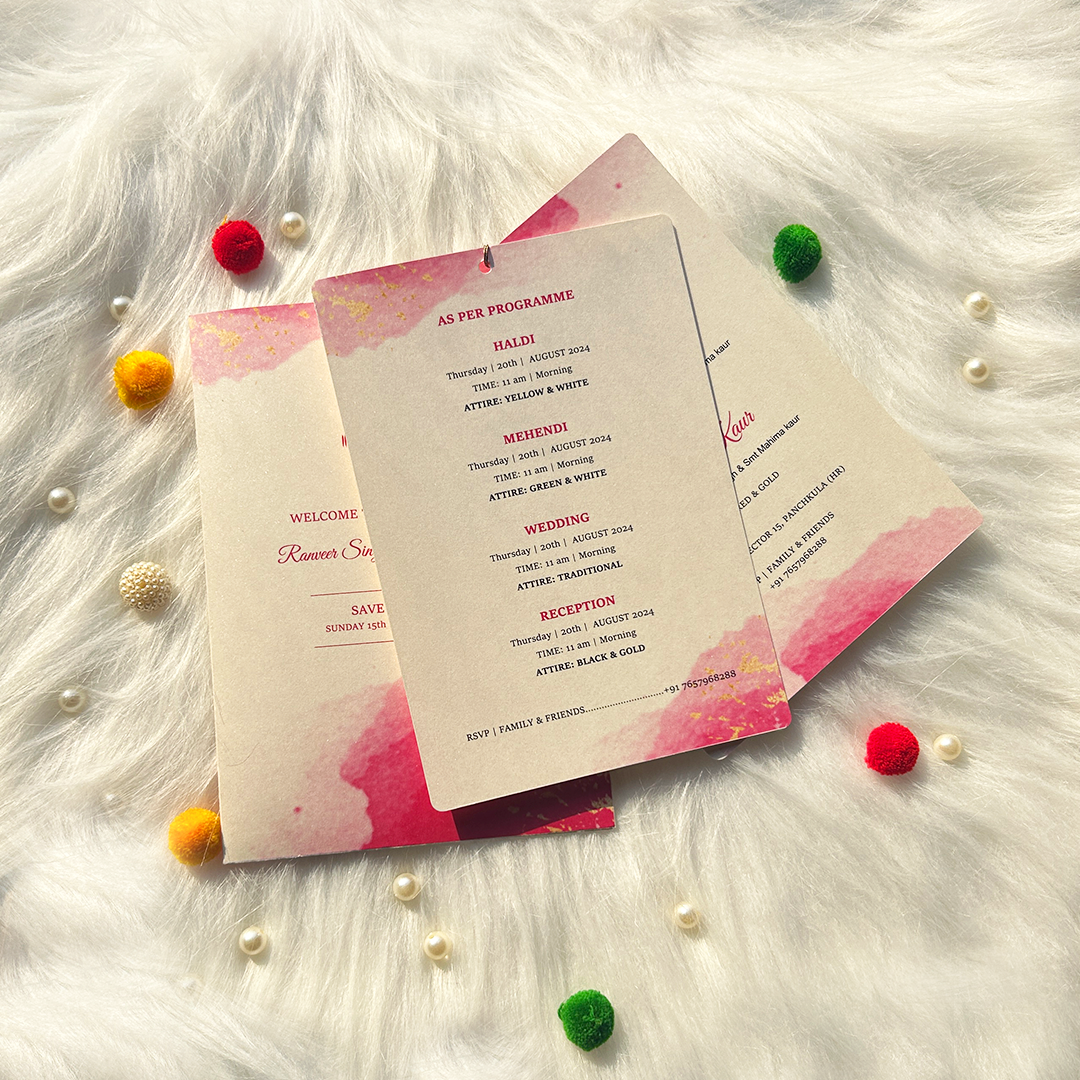 AS PER PROGRAMME
HALDI
Thursday | 20th | AUGUST 2024
TIME: 11 am | Morning
ATTIRE: YELLOW & WHITE
MEHENDI
Thursday | 20th | AUGUST 2024
TIME: 11 am | Morning
ATTIRE: GREEN & WHITE
WEDDING
Thursday | 20th | AUGUST 2024
TIME: 11 am | Morning
ATTIRE: TRADITIONAL
RECEPTION
Thursday | 20th | AUGUST 2024
TIME: 11 am | Morning
ATTIRE: BLACK & GOLD
RSVP | FAMILY & FRIENDS............................+91 7657968288
WELCOME
Ranveer
SAVE
SUNDAY 15th
kaur
Kaur
& Smt Mahima kaur
& GOLD
15, PANCHKULA (HR)
| FAMILY & FRIENDS
+91 7657968288